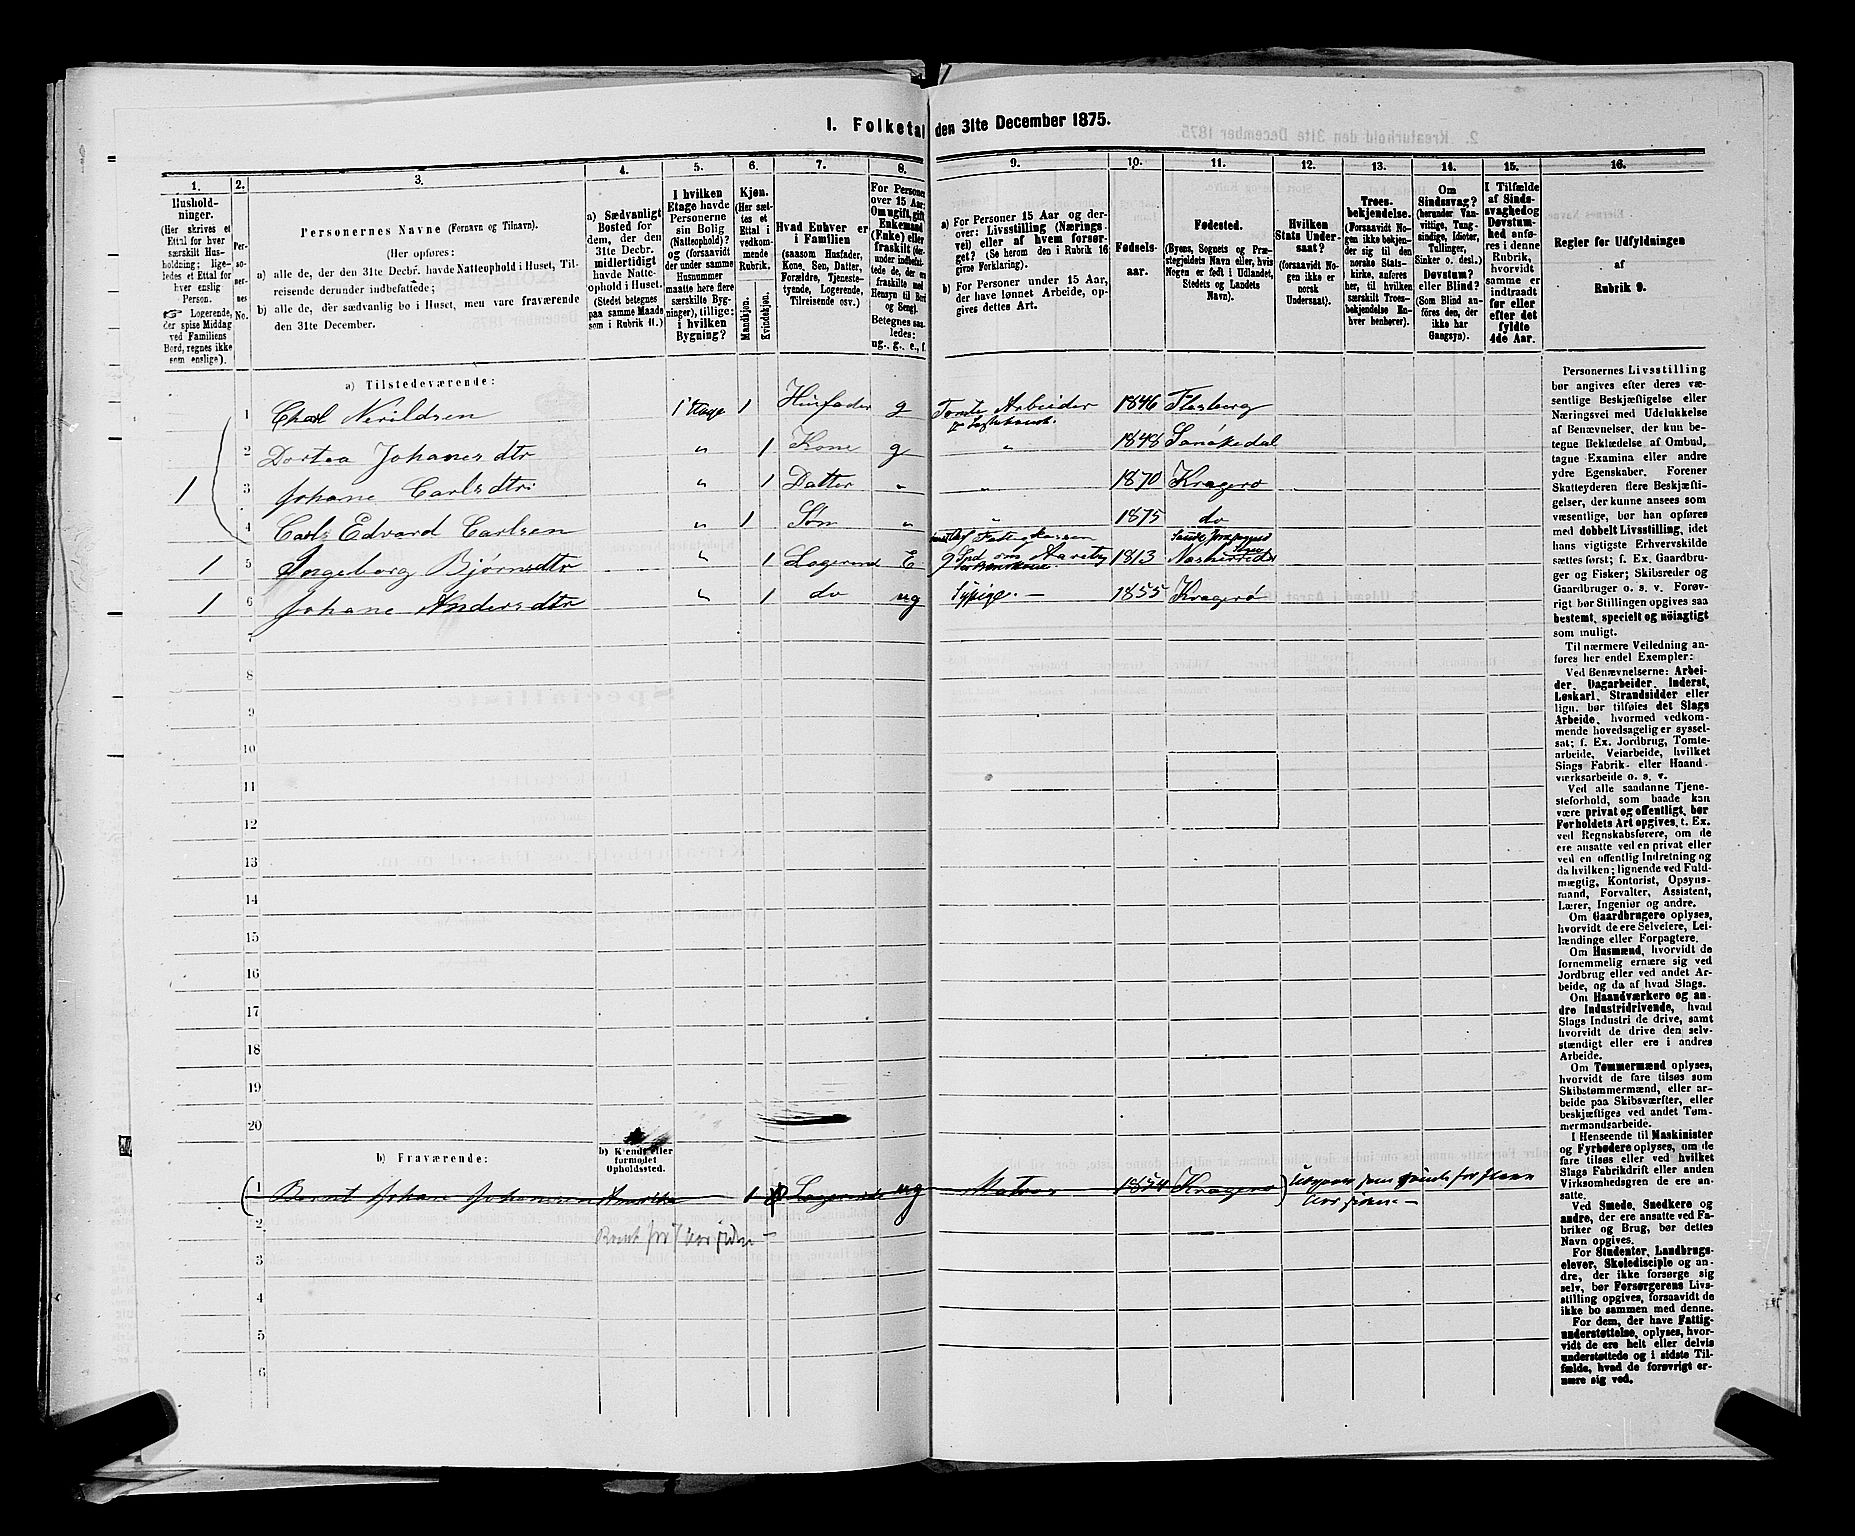 1. Folketal den 31te December 1875.
1.
2.
3.
4.
5.
6.
7.
8.
9.
10.
11.
12.
13.
14.
15.
16.
Husholdninger.
(Her skrives et
Ettal for hver
særskilt Husholdning;
ligeledes et Ettal for
hver enslig
Person.
Logerende,
der spise Middag
ved Familiens
Bord, regnes ikke
som enslige).
Personernes No.
Personernes Navne (Fornavn og Tilnavn).
(Her opføres:
a) alle de, der den 31te Decbr. havde Natteophold i Huset, Tilreisende derunder indbefattede;
b) alle de, der sædvanlig bo i Huset, men vare fraværende
den 31te December.
a) Sædvanligt
Bosted for
dem, der den
31te Decbr.
midlertidigt
havde Natteophold i Huset.
(Stedet betegnes
paa samme Maade
som i Rubrik 11.)
I hvilken
Etage havde
Personerne
sin Bolig
(Natteophold)?
og (forsaavidt
der under samme
Husnummer
maatte være flere
særskilte Bygninger), tillige:
i hvilken
Bygning?
Kjøn.
(Her sættes et
Ettal i
vedkommende
Rubrik.
Mandkjøn.
Kvindekjøn.
Hvad Enhver er
i Familien
(saasom Husfader,
Kone, Søn, Datter,
Forældre, Tjenestetyende, Logerende,
Tilreisende osv.)
For Personer
over 15 Aar:
Om ugift, gift,
Enkemand
(Enke) eller
fraskilt
Betegnes saaledes:
ug., g., e., f.
a) For Personer 15 Aar og derover: Livsstilling (Næringsvei) eller af hvem forsørget? (Se herom den i Rubrik 16
givne Forklaring).
b) For Personer under 15 Aar,
der have lønnet Arbeide, opgives dettes Art.
Fødselsaar.
Fødested.
(Byens, Sognets og Præstegjeldets Navn eller, hvis
Nogen er født i Udlandet,
Stedets og Landets
Navn).
Hvilken
Stats Undersaat?
(forsaavidt Nogen ikke er
norsk
Undersaat).
Troesbekjendelse.
(Forsaavidt Nogen ikke bekjender sig til den
norske Statskirke, anføres
her, til hvilken
særskilt Troesbekjendelse Enhver henhører).
Om
Sindssvag?
(herunder Vanvittige, Tungsindige, Idioter,
Tullinger,
Sinker o. desl.)
Døvstum?
eller Blind?
(Som Blind anføres den, der
ikke har
Gangsyn).
I Tilfælde
af Sindssvaghed og
Døvstumhed anføres i denne
Rubrik,
hvorvidt
samme er
indtraadt
før eller
efter det
fyldte
4de Aar.
Regler for Udfyldningen
af
Rubrik 9.
a) Tilstedeværende:
1 Charl Nerildsen 1' Etage 1 Husfader g Tomte Arbeider 1846 Flesberg
2 Dortea Johanesdtr " 1 Kone g " 1848 Sanøkedal
1 3 Johane Carlsdtr " 1 Datter " " 1870 Kragerø
4 Carls Edvard Carlsen " 1 Søn " " 1875 do
1 5 Ingeborg Bjørnsdtr " 1 Logerend E 1813
1 6 Johane Andersdtr " 1 do ug Sypige.— 1855 Kragerø
7
8
9
10
11
12
13
14
15
16
17
18
19
20
b) Fraværende:
b) Kjendt eller
formodet
Opholdssted.
1 Bernt Johan Johansen Amerika 1 Logerende ug Matros 1854 Kragerø
2
3
4
5
6
Personernes Livsstilling
bør angives efter deres væsentlige Beskjæftigelse eller
Næringsvei med Udelukkelse
af Benævnelser, der kun betegne Beklædelse af Ombud,
tagne Examina eller andre
ydre Egenskaber. Forener
Skatteyderen flere Beskjæftigelser, der kunne ansees som
væsentlige, bør han opføres
med dobbelt Livsstilling, idet
hans vigtigste Erhvervskilde
sættes først; f. Ex. Gaardbruger og Fisker; Skibsreder og
Gaardbruger o. s. v. Forøvrigt bør Stillingen opgives saa
bestemt, specielt og nøiagtigt
som muligt.
Til nærmere Veiledning anføres her endel Exempler:
Ved Benævnelserne: Arbeider, Dagarbeider, Inderst,
Løskarl, Strandsidder eller
lign. bør tilføies det Slags
Arbeide, hvormed vedkommende hovedsagelig er sysselsat; f. Ex. Jordbrug, Tomtearbeide, Veiarbeide, hvilket
Slags Fabrik- eller Haandværksarbeide o. s. v.
Ved alle saadanne Tjenesteforhold, som baade kan
være privat og offentligt, bør
Forholdets Art opgives, t. Ex.
ved Regnskabsførere, om de
ere ansatte ved en privat eller
ved en offentlig Indretning og
da hvilken; lignende ved Fuldmægtig, Kontorist, Opsynsmand, Forvalter, Assistent,
Lærer, Ingeniør og andre.
Om Gaardbrugere oplyses,
hvorvidt de ere Selveiere, Leilændinge eller Forpagtere.
Om Husmænd, hvorvidt de
fornemmelig ernære sig ved
Jordbrug eller ved andet Arbeide, og da af hvad Slags.
Om Haandværkere og andre Industridrivende, hvad
Slags Industri de drive, samt
hvorvidt de drive den selvstændigt eller ere i andres
Arbeide.
Om Tømmermænd oplyses,
hvorvidt de fare tilsøs som
Skibstømmermænd, eller arbeide paa Skibsværfter, eller
beskjæftiges ved andet Tømmermandsarbeide.
I Henseende til Maskinister
og Fyrbødere oplyses, om de
fare tilsøs eller ved hvilket
Slags Fabrikdrift eller anden
Virksomhedsgren de ere ansatte.
Ved Smede, Snedkere og
andre, der ere ansatte ved Fabriker og Brug, bør dettes
Navn opgives.
For Studenter, Landbrugselever, Skoledisciple og andre, der ikke forsørge sig
selv, bør Forsørgerens Livsstilling opgives, forsaavidt de
ikke bo sammen med denne.
For dem, der have Fattigunderstøttelse, oplyses, hvorvidt de ere helt eller delvis
understøttede og i sidste Tilfælde, hvad de forøvrigt ernære sig ved.